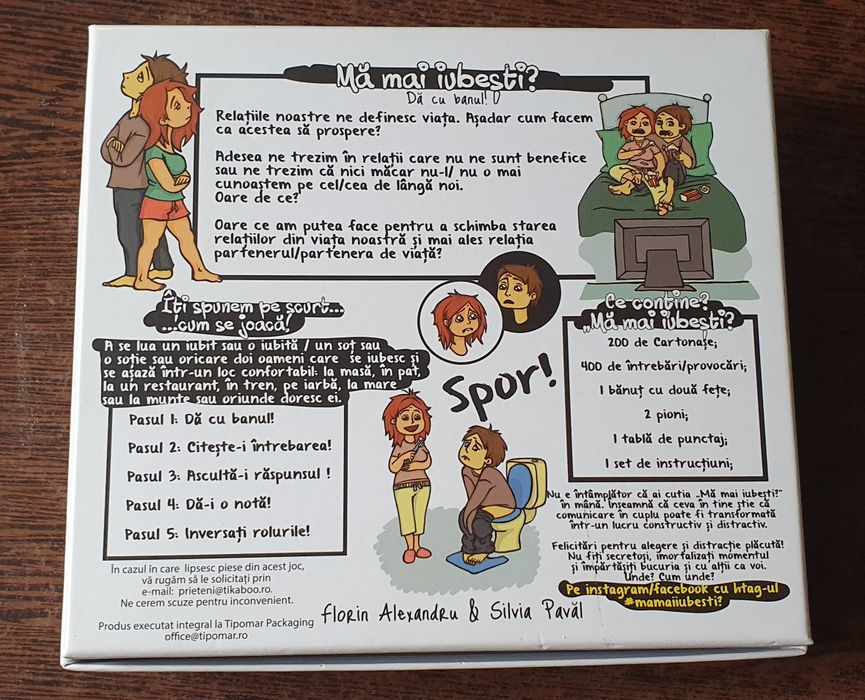 Mă mai iubești?
Dă cu banul!
Relațiile noastre ne definesc viața. Așadar cum facem
ca acestea să prospere?
Adesea ne trezim în relații care nu ne sunt benefice
sau ne trezim că nici măcar nu-l/ nu o mai
cunoastem pe cel/cea de lângă noi.
Oare de ce?
Oare ce am putea face pentru a schimba starea
relațiilor din viața noastră și mai ales relația
partenerul/partenera de viață?
Îți spunem pe scurt...
...cum se joacă!
A se lua un iubit sau o iubită / un soț sau
o soție sau oricare doi oameni care se iubesc și
se așază într-un loc confortabil: la masă, în pat,
la un restaurant, în tren, pe iarbă, la mare
sau la munte sau oriunde doresc ei.
Pasul 1: Dă cu banul!
Pasul 2: Citește-i întrebarea!
Pasul 3: Ascultă-i răspunsul !
Pasul 4: Dă-i o notă!
Pasul 5: Inversați rolurile!
În cazul în care lipsesc piese din acest joc,
vă rugăm să le solicitați prin
e-mail: prieteni@tikaboo.ro.
Ne cerem scuze pentru inconvenient.
Produs executat integral la Tipomar Packaging
office@tipomar.ro
Spor!
Ce conține?
„Mă mai iubești?
200 de Cartonașe;
400 de întrebări/provocări;
1 bănuț cu două fețe;
2 pioni;
1 tablă de punctaj;
1 set de instrucțiuni;
Nu e întâmplător că ai cutia „Mă mai iubești?"
în mână. Inseamnă că ceva în tine știe că
comunicare în cuplu poate fi transformată
într-un lucru constructiv și distractiv.
Felicitări pentru alegere și distracție plăcută!
Nu fiți secretoși, imortalizați momentul
și împărtășiți bucuria și cu alții ca voi.
Unde? Cum unde?
Pe instagram/facebook cu htag-ul
#mamaiiubesti?
Florin Alexandru & Silvia Pavăl